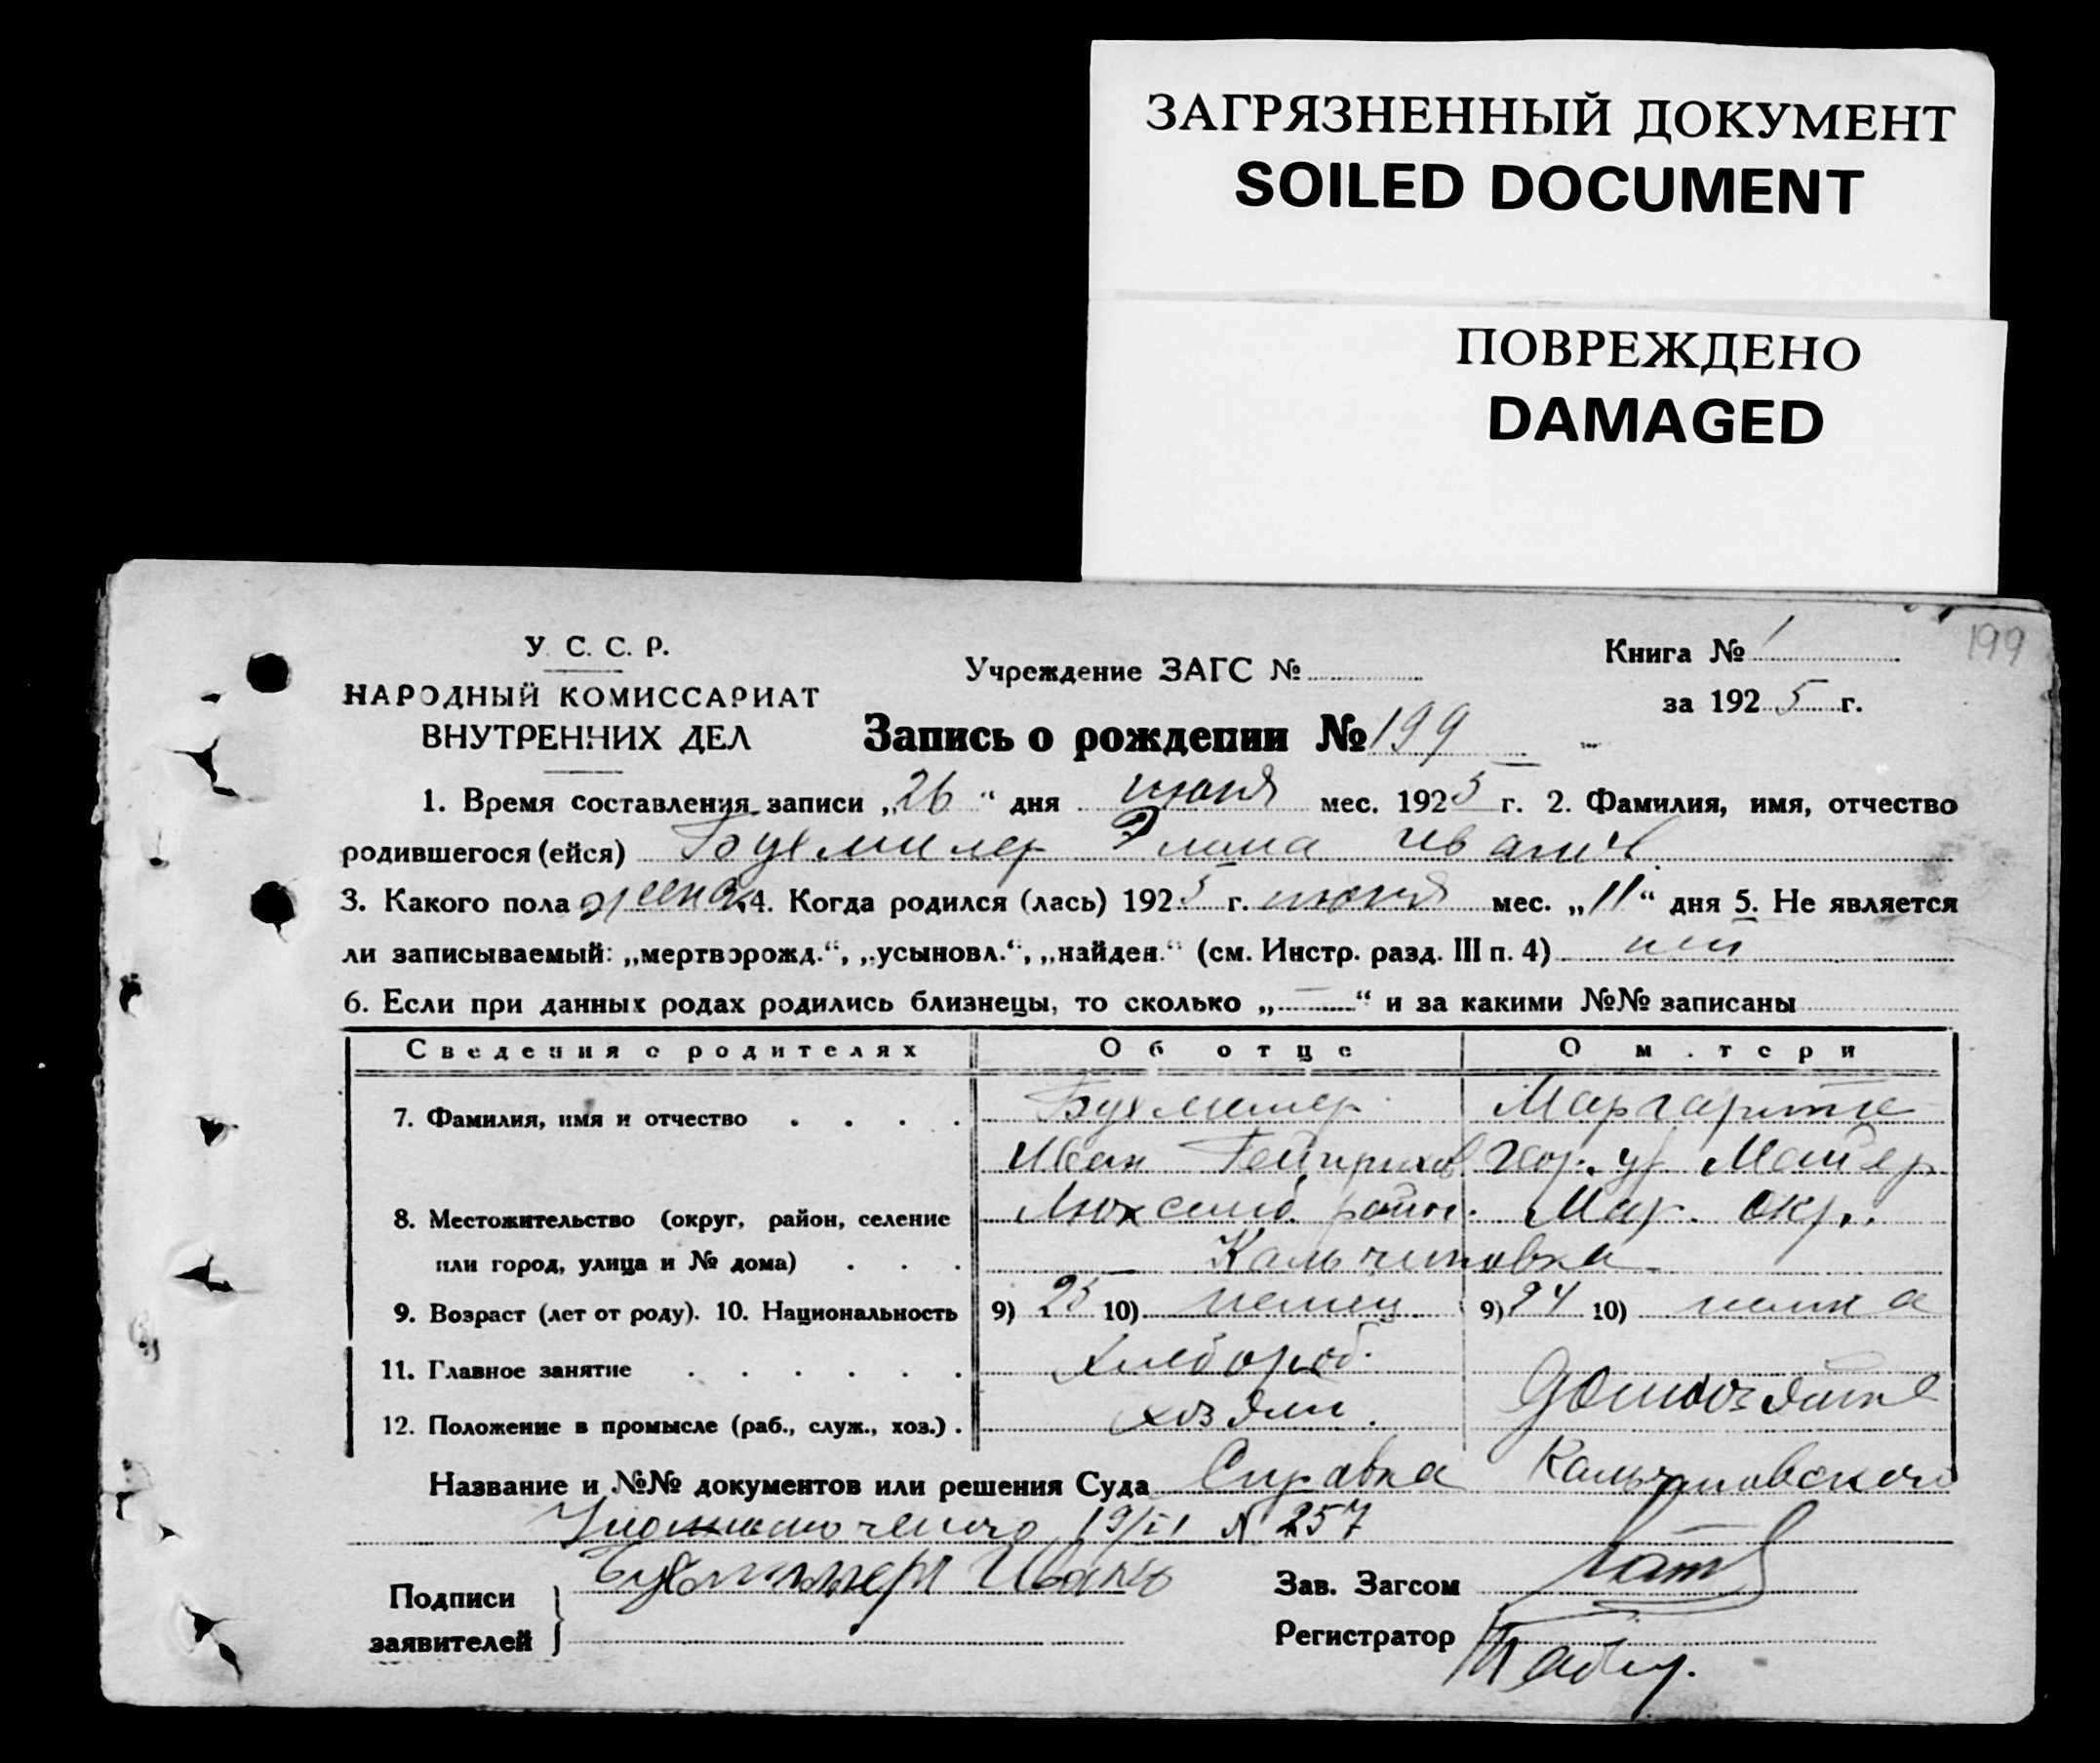 ЗАГРЯЗНЕННЫЙ ДОКУМЕНТ
SOILED DOCUMENT
ПОВРЕЖДЕНО
DAMAGED
199
У. С. С. Р.
НАРОДНЫЙ КОМИССАРИАТ
ВНУТРЕННИХ ДЕЛ
Учреждение ЗАГС №
Книга № 1
за 1925 г.
Запись о рождении № 199
1. Время составления записи „26“ дня июня мес. 1925 г. 2. Фамилия, имя, отчество
родившегося (ейся) Бухмилер Элина Иванич
3. Какого пола женск 4. Когда родился (лась) 1925 г. июня мес. „11“ дня 5. Не является
ли записываемый: „мертворожд.“, „усыновл.“, „найден.“ (см. Инстр. разд. III п. 4) нет
6. Если при данных родах родились близнецы, то сколько „—“ и за какими №№ записаны
Сведения о родителях Об отце О м.тери
7. Фамилия, имя и отчество . . . . Бухмилер Маргарите
Иван Гейнрихов Майер
8. Местожительство (округ, район, селение Люксемб. район. Мар. окр.
или город, улица и № дома) . . . Кальчиновка
9. Возраст (лет от роду). 10. Национальность 9) 25 10) немец 9) 24 10) немка
11. Главное занятие . . . . . . Хлебороб.
12. Положение в промысле (раб., служ., хоз.) . хозяин. домохозяйка
Название и №№ документов или решения Суда Справка Кальчиновского
Уполномоченого 19/VI № 257
Подписи заявителей Бухмиллер Иванъ
Зав. Загсом
Регистратор